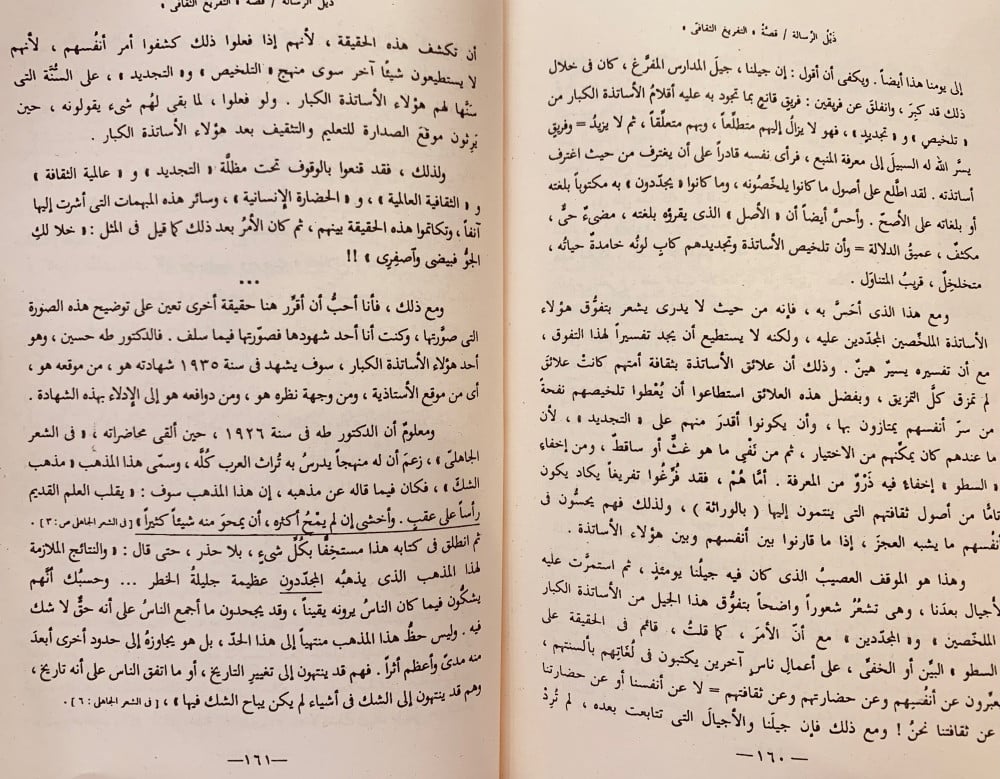 ذَيْلُ الرِّسالة / قصةُ « التفريغ الثقافى »
إلى يومنا هذا أيضاً . ويكفى أن أقول : إن جيلنا ، جيلَ المدارس المفرَّغ ، كان فى خلال
ذلك قد كبِرَ ، وانفلق عن فريقين : فريقٍ قانعٍ بما تجود به عليه أقلامُ الأساتذة الكبار من
« تلخيصٍ » و « تجديدٍ » ، فهو لا يزالُ إليهم متطلِّعاً ، وبهم متعلِّقاً ، ثم لا يزيدُ = وفريقٍ
يسَّر الله له السبيلَ إلى معرفة المنبع ، فرأى نفسه قادراً على أن يغترف من حيث اغترف
أساتذته . لقد اطَّلع على أصول ما كانوا يلخِّصُونه ، وما كانوا « يجدّدون » به مكتوباً بلغته
أو بلغاته على الأصحّ . وأحسَّ أيضاً أن « الأصل » الذى يقرؤه بلغته ، مضىءٌ حىٌّ ،
مكثفٌ ، عميقُ الدلالة = وأن تلخيص الأساتذة وتجديدهم كابٍ لونُه خامدةٌ حياتُه ،
متخلخِلٌ ، قريبُ المتناوَل .
ومع هذا الذى أحَسَّ به ، فإنه من حيث لا يدرى يشعر بتفوُّق هؤلاء
الأساتذة الملخِّصين المجدِّدين عليه ، ولكنه لا يستطيع أن يجد تفسيراً لهذا التفوق ،
مع أن تفسيره يسيرٌ هينٌ . وذلك أن علائق الأساتذة بثقافة أمتهم كانتْ علائقَ
لم تمزق كلَّ التمزيق ، وبفضل هذه العلائق استطاعوا أن يُعْطوا تلخيصهم نفحةً
من سرّ أنفسهم يمتازون بها ، وأن يكونوا أقدرَ منهم على « التجديد » ، لأن
ما عندهم كان يمكّنهم من الاختيار ، ثم من نَفْىِ ما هو غثٌّ أو ساقطٌ ، ومن إخفاءِ
« السطو » إخفاءً فيه ذَرْوٌ من المعرفة . أمَّا هُمْ ، فقد فُرِّغُوا تفريغاً يكاد يكون
تامًّا من أصول ثقافتهم التى ينتمون إليها ( بالوراثة ) ، ولذلك فهم يحسُّون فى
أنفُسهم ما يشبه العجزَ ، إذا ما قارنوا بين أنفسهم وبين هؤلاء الأساتذة .
وهذا هو الموقف العصيبُ الذى كان فيه جيلُنا يومئذٍ ، ثم استمرَّت عليه
الأجيال بعدَنا ، وهى تشعُرُ شعوراً واضحاً بتفوُّق هذا الجيل من الأساتذة الكبار
« الملخِّصين » و« المجدِّدين » مع أنّ الأمرَ ، كما قلتُ ، قائم فى الحقيقة على
« السطو » البيِّن أو الخفىّ ، على أعمالِ ناسٍ آخرين يكتبون فى لُغاتِهم بألسنتهم ،
يعبِّرون عن أنفُسِهم وعن حضارتهم وعن ثقافتهم = لا عن أنفسنا أو عن حضارتنا
أو عن ثقافتنا نحنُ ! ومع ذلك فإن جيلَنا والأجيالَ التى تتابعت بعده ، لم تُرِدْ
—١٦٠—
ذَيْلُ الرسالة / قصةُ « التفريغ الثقافى »
أن تكشف هذه الحقيقة ، لأنهم إذا فعلوا ذلك كشفوا أمر أنفُسهم ، لأنهم
لا يستطيعون شيئًا آخر سوى منهج « التلخيص » و« التجديد » ، على السُّنَّة التى
سَنَّها لهم هؤلاء الأساتذة الكبار . ولو فعلوا ، لما بقى لهُم شىء يقولونه ، حين
يَرِثون موقعَ الصدارة للتعليم والتثقيف بعد هؤلاء الأساتذة الكبار .
ولذلك ، فقد قنعوا بالوقوف تحت مظلَّة « التجديد » و « عالمية الثقافة »
و « الثقافية العالمية » ، و « الحضارة الإنسانية » ، وسائر هذه المبهمات التى أشرت إليها
آنفاً ، وتكاتموا هذه الحقيقة بينهم ، ثم كان الأمرُ بعد ذلك كما قيل فى المثل : « خلا لكِ
الجوُّ فبيضى وآصفِرِى » !!
•••
ومع ذلك ، فأنا أحبُّ أن أقرِّر هنا حقيقة أخرى تعين على توضيح هذه الصورة
التى صوَّرتها ، وكنت أنا أحد شهودها فصوّرتها فيما سلف . فالدكتور طه حسين ، وهو
أحد هؤلاء الأساتذة الكبار ، سوف يشهد فى سنة ١٩٣٥ شهادته هو ، من موقعه هو ،
أى من موقع الأستاذية ، ومن وجهة نظره هو ، ومن دوافعه هو إلى الإدلاء بهذه الشهادة .
ومعلومٌ أن الدكتور طه فى سنة ١٩٢٦ ، حين ألقى محاضراته ، « فى الشعر
الجاهلىّ » ، زعمَ أن له منهجاً يدرسُ به تُراث العرب كلَّه ، وسمّى هذا المذهب « مذهب
الشكّ » ، فكان فيما قاله عن مذهبه ، إن هذا المذهب سوف : « يقلب العلم القديم
رأساً على عقبٍ . وأخشى إن لم يمْحُ أكثره ، أن يمحوَ منه شيئاً كثيراً » [ فى الشعر الجاهلى ص : ٣ ] .
ثم انطلق فى كتابه هذا مستخِفًّا بكُلِّ شىءٍ ، بلا حذر ، حتى قال : « والنتائج الملازمة
لهذا المذهب الذى يذهبُه المجدِّدون عظيمة جليلةُ الخطر ... وحسبُك أنَّهم
يشكُّون فيما كان الناسُ يرونه يقيناً ، وقد يجحدون ما أجمع الناسُ على أنه حقٌّ لا شك
فيه . وليس حظُّ هذا المذهب منتهياً إلى هذا الحدّ ، بل هو يجاوزهُ إلى حدود أخرى أبعدَ
منه مدىً وأعظم أثراً . فهم قد ينتهون إلى تغييرِ التاريخ ، أو ما اتفق الناس على أنه تاريخ ،
وهم قد ينتهون إلى الشك فى أشياء لم يكن يباح الشك فيها » ، [ فى الشعر الجاهلى : ٦ ] .
—١٦١—